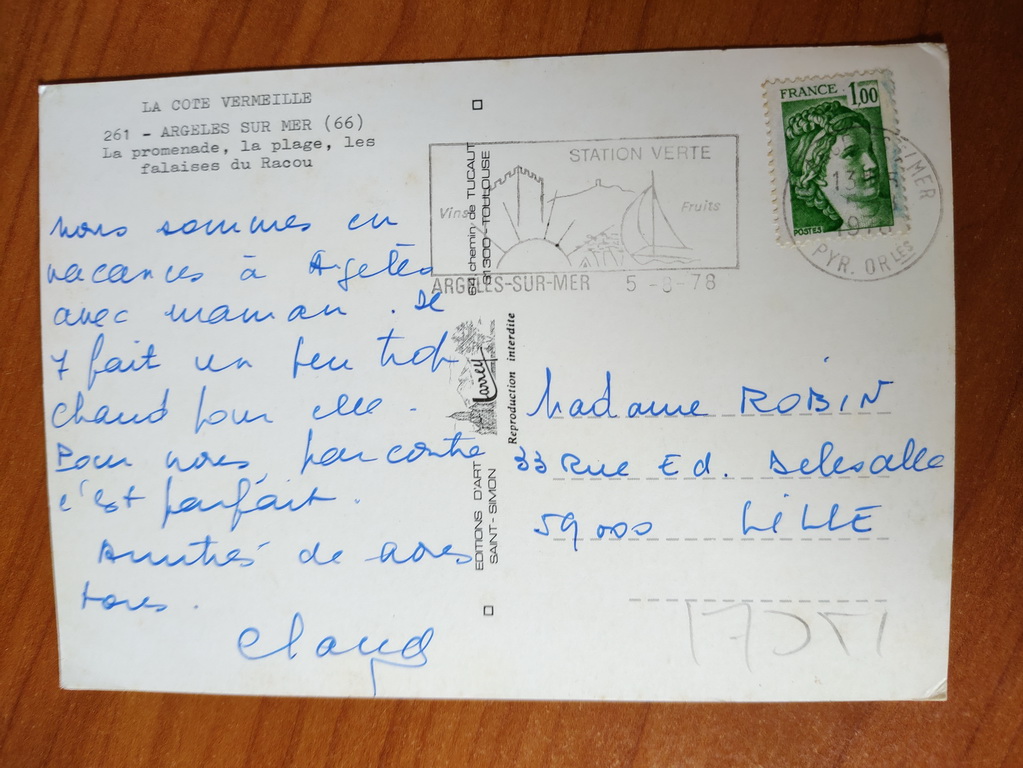 LA COTE VERMEILLE
261 - ARGELES SUR MER (66)
La promenade, la plage, les
falaises du Racou
nous sommes en
vacances à Argelès
avec maman. Il
y fait un peu trop
chaud pour elle.
Pour nous, par contre
c'est parfait.
Amitiés de nous
tous.
Claud
chemin de TUCAUT
31300 - TOULOUSE
Larrey
Reproduction interdite
EDITIONS D'ART
SAINT-SIMON
STATION VERTE
Vins
Fruits
ARGELES-SUR-MER 5-8-78
FRANCE 1,00
POSTES
MER
13H
1978
PYR. ORLES
Madame ROBIN
33 Rue Ed. Delesalle
59000 LILLE